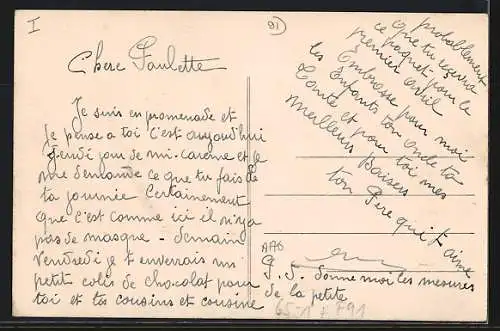 I
91
Chere Paulette
Je suis en promenade et
Je pense a toi c'est aujourd'hui
Jeudi jour de mi-careme et je
me demande ce que tu fais de
ta journée Certainement
que c'est comme ici il n'y a
pas de masque - Demain
Vendredi je t'enverrais un
petit colis de chocolat pour
toi et tes cousins et cousine
probablement
que tu recevra
ce paquet pour le
premier avril
Embrasse pour moi
les Enfants ton oncle ta
Tante et pour toi mes
meilleurs Baisers
ton Père qui t'aime
P.S. donne moi les mesures
de la petite